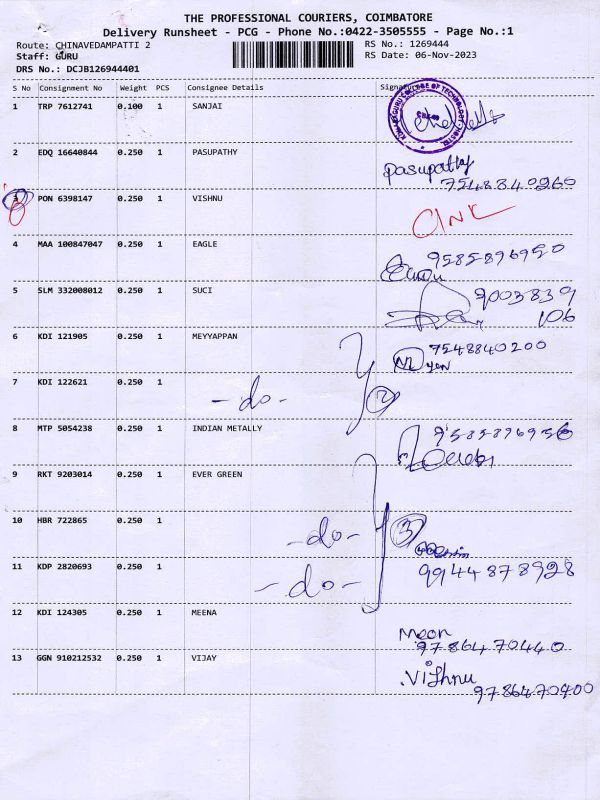 THE PROFESSIONAL COURIERS, COIMBATORE
Delivery Runsheet - PCG - Phone No.:0422-3505555 - Page No.:1
Route: CHINAVEDAMPATTI 2 RS No.: 1269444
Staff: GURU RS Date: 06-Nov-2023
DRS No.: DCJB126944401
S No Consignment No Weight PCS Consignee Details
1 TRP 7612741 0.100 1 SANJAI
2 EDQ 16640844 0.250 1 PASUPATHY pasupathy
7548840260
3 PON 6398147 0.250 1 VISHNU
4 MAA 100847047 0.250 1 EAGLE 9585896950
5 SLM 332008012 0.250 1 SUCI 9003839
106
6 KDI 121905 0.250 1 MEYYAPPAN 7548840200
7 KDI 122621 0.250 1 -do- 2
8 MTP 5054238 0.250 1 INDIAN METALLY 9585896956
9 RKT 9203014 0.250 1 EVER GREEN
10 HBR 722865 0.250 1 -do- 3
11 KDP 2820693 0.250 1 -do- 99448 78928
12 KDI 124305 0.250 1 MEENA Meen
9786470440
13 GGN 910212532 0.250 1 VIJAY Vishnu
9786470400